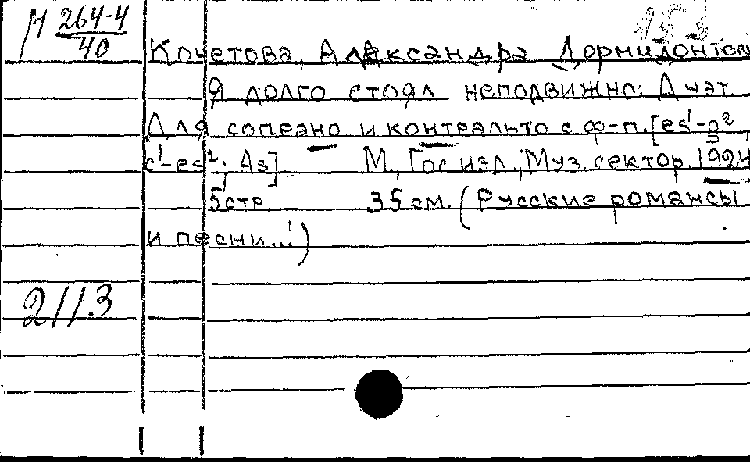 М 264-4
40
Кочетова, Александра Дормидонтов
Я долго стоял неподвижно: Дуэт.
Для сопрано и контральто с ф-п. [es¹-g²,
c¹-es²; As] М., Гос. изд., Муз. сектор, 1924
5 стр. 35 см. (Русские романсы
и песни...)
211.3